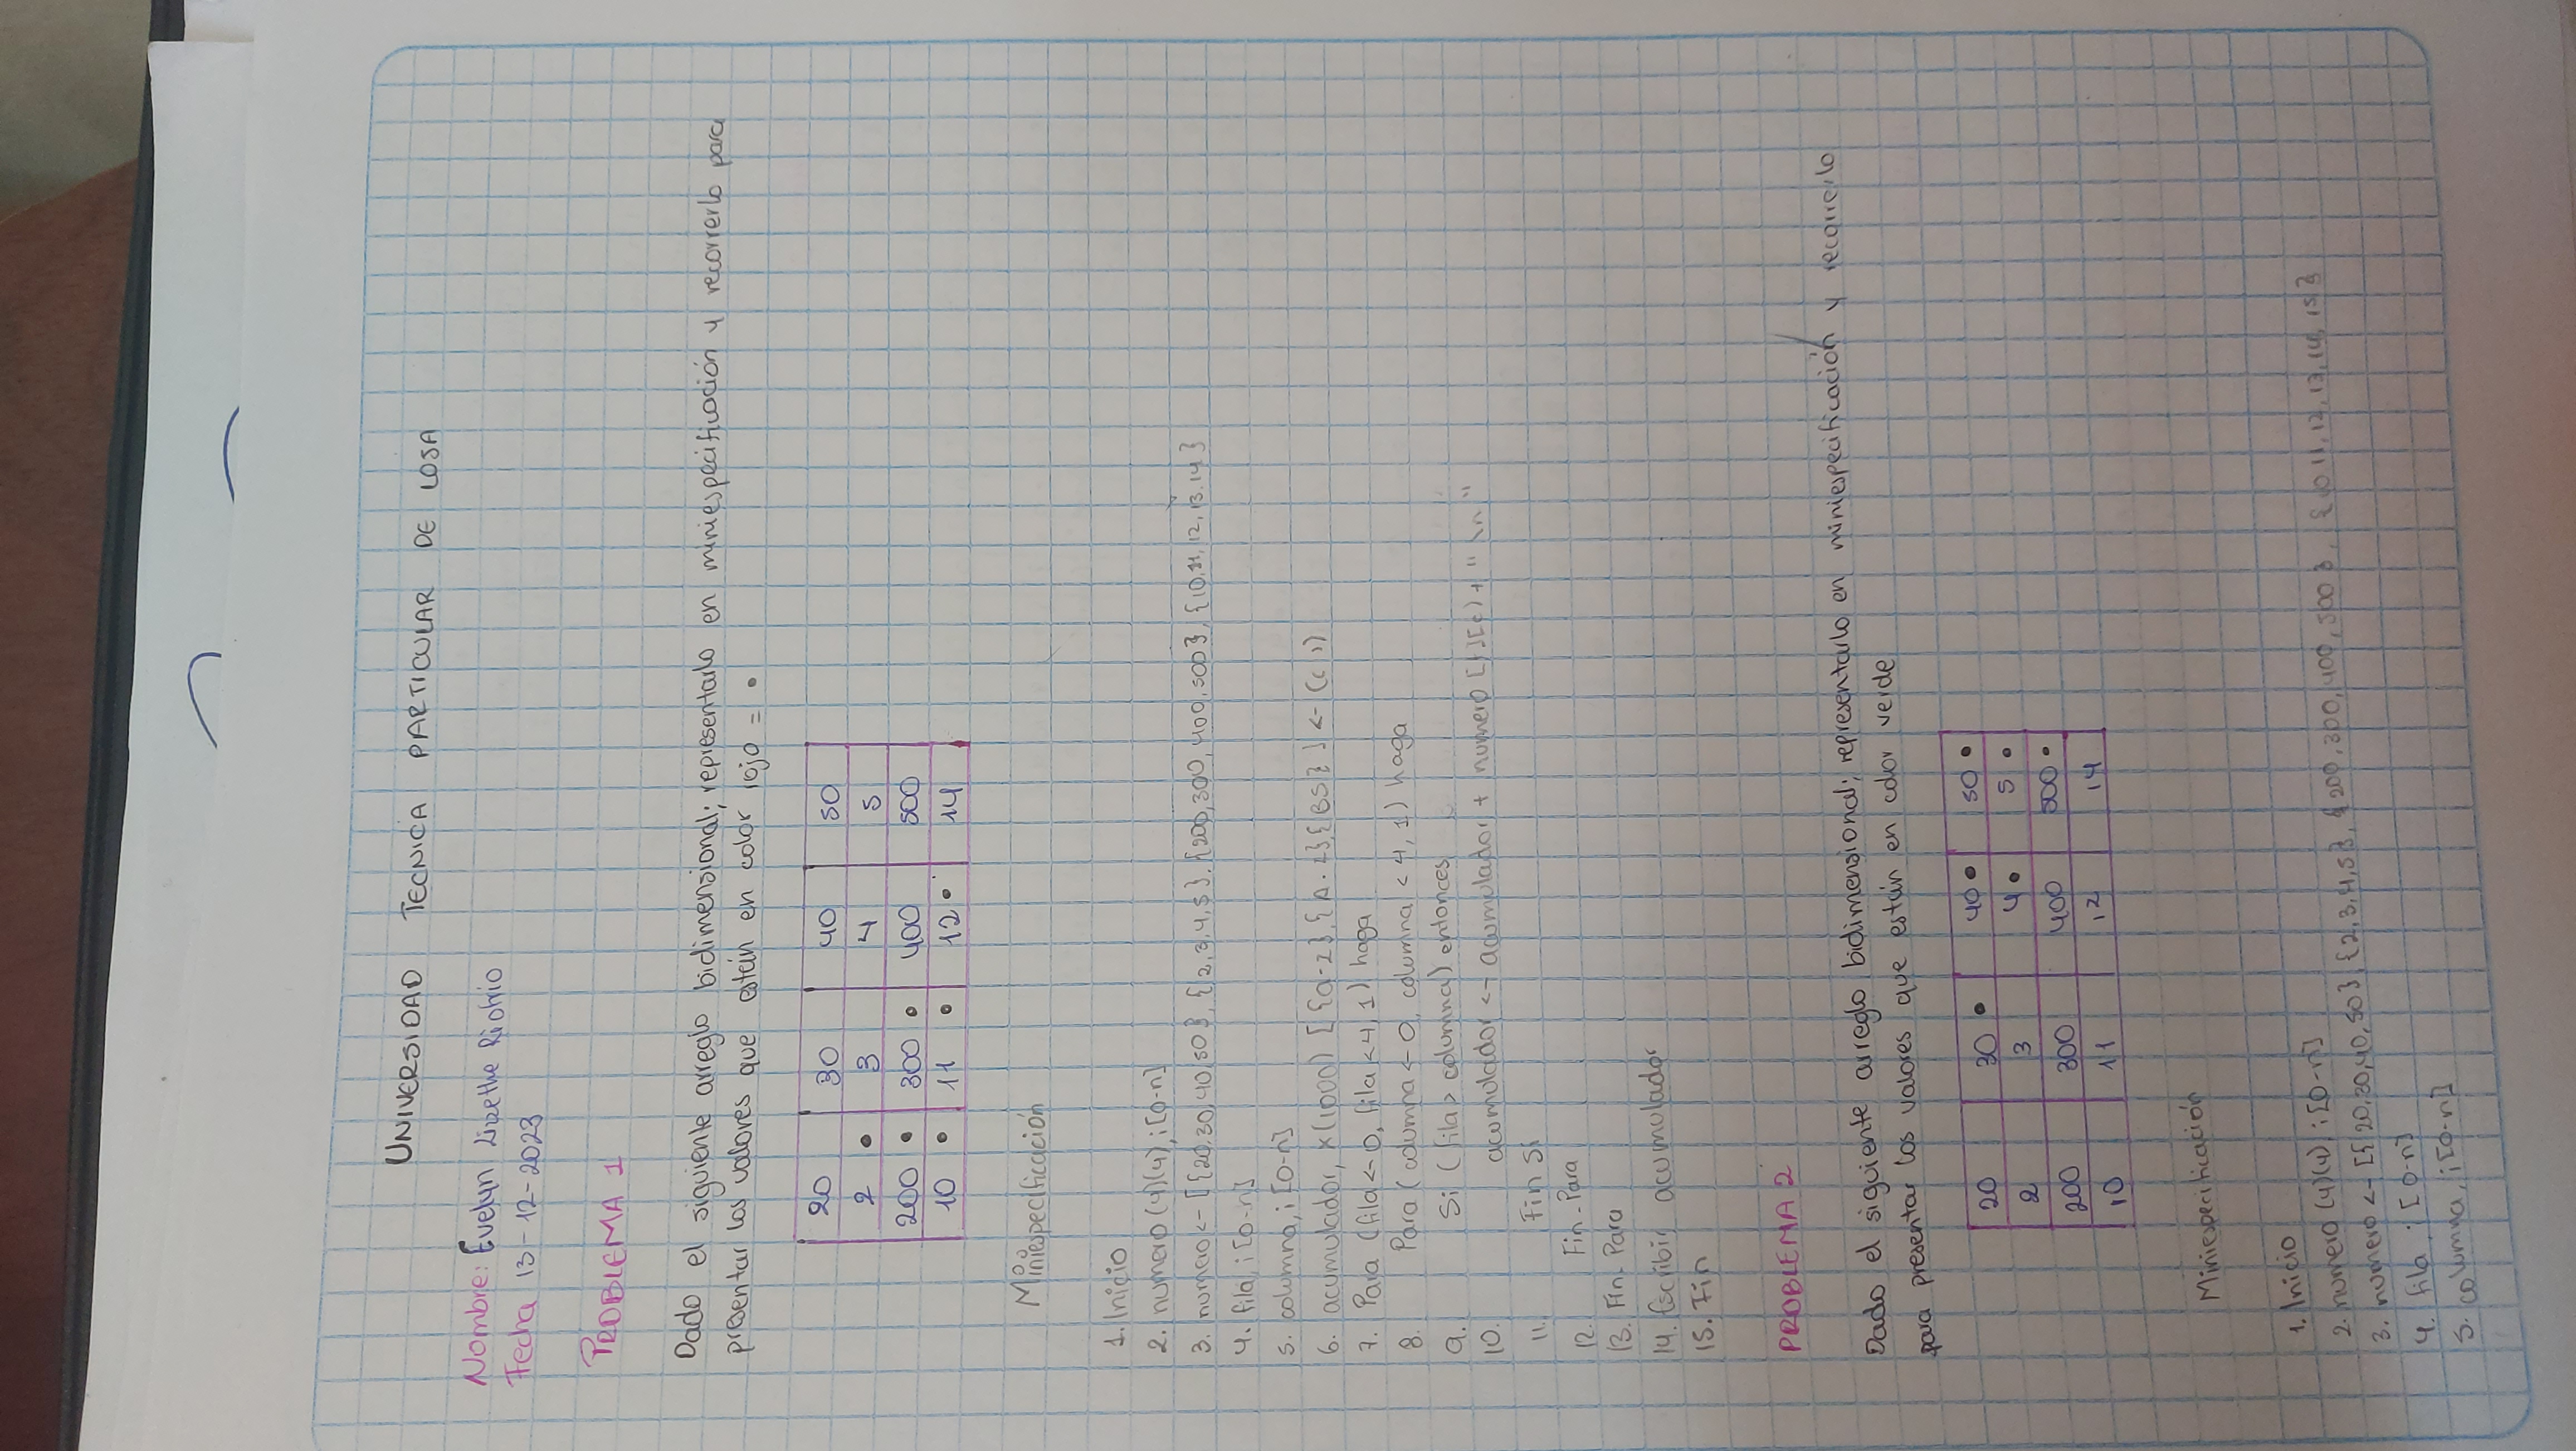 UNIVERSIDAD TECNICA PARTICULAR DE LOJA
Nombre: Evelyn Lizethe Riofrio
Fecha 13-12-2023
PROBLEMA 1
Dado el siguiente arreglo bidimensional; representarlo en miniespecificación y recorrerlo para
presentar los valores que están en color rojo = •
20 30 40 50
2 • 3 4 5
200 • 300 • 400 500
10 • 11 • 12 • 14
Miniespecificación
1. Inicio
2. numero (4)(4), i [0-n]
3. numero <- [{20,30,40,50}, {2,3,4,5}, {200,300,400,500}, {10,11,12,13,14}
4. fila, i [0-n]
5. columna, i [0-n]
6. acumulador, x(1000) [{a-z},{A-Z},{BS}] <- ("")
7. Para (fila <- 0, fila < 4, 1) haga
8. Para (columna <- 0, columna < 4, 1) haga
9. Si (fila > columna) entonces
10. acumulador <- acumulador + numero [f][c] + "\n"
11. Fin Si
12. Fin-Para
13. Fin-Para
14. Escribir acumulador
15. Fin
PROBLEMA 2
Dado el siguiente arreglo bidimensional; representarlo en miniespecificación y recorrerlo
para presentar los valores que están en color verde
20 30 • 40 • 50 •
2 3 4 • 5 •
200 300 400 500 •
10 11 12 14
Miniespecificación
1. Inicio
2. numero (4)(4), i [0-n]
3. numero <- [{20,30,40,50} {2,3,4,5}, {200,300,400,500}, {10 11,12,13,14,15}
4. fila, i [0-n]
5. columna, i [0-n]